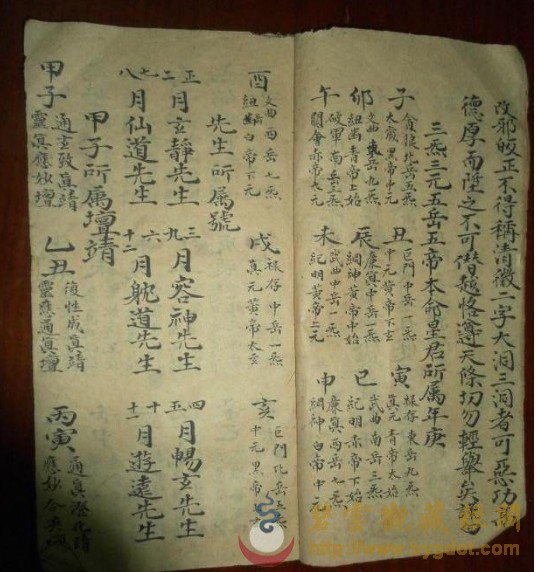 改邪皈正不得稱清微二字大洞三洞者可惡功
德厚而陞之不可僭越恪遵天條切勿輕舉矣
三炁三元五岳五帝本命星君所属年庚
子 貪狼北岳五炁
太嚴黑帝中元
丑 巨門中岳一炁
中元黃帝下玄
寅 祿存東岳九炁
真元青帝太始
卯 文曲東岳九炁
紐幽青帝上始
辰 廉真中岳一炁
綱神黃帝中始
巳 武曲南岳三炁
紀明赤帝下始
午 破軍南岳三炁
關會赤帝太元
未 武曲中岳一炁
紀明黃帝上元
申 廉真西岳七炁
綱神白帝中元
酉 文曲西岳七炁
紐幽白帝下元
戌 祿存中岳一炁
真元黃帝太玄
亥 巨門北岳五炁
中元黑帝
先生所属號
正二月玄靜先生
三九月容神先生
四五月暢玄先生
七八月仙道先生
六十二月躭道先生
十十一月遊遠先生
甲子所属壇靖
甲子 通玄致真靖
靈真應妙壇
乙丑 復性成真靖
靈應通真壇
丙寅 通真澄化靖
應妙合真壇
www.bygdot.com